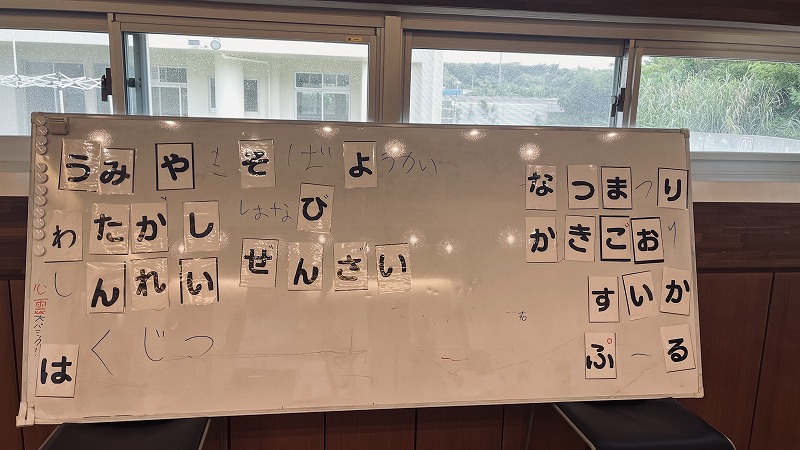 うみ やきそば ようかい なつまつり
わたがし はなび かきごおり
しんれい ぜんざい すいか
心霊スパニング!!
はくじつ ぷーる